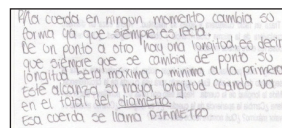 Una cuerda en ningun momento cambia su
forma ya que siempre es recta.
De un punto a otro hay una longitud, es decir
que siempre que se cambia de punto su
longitud será máxima o minima a la primera
Este alcanza su maya longitud cuando va
en el total del diametro
Esa cuerda se llama DIAMETRO